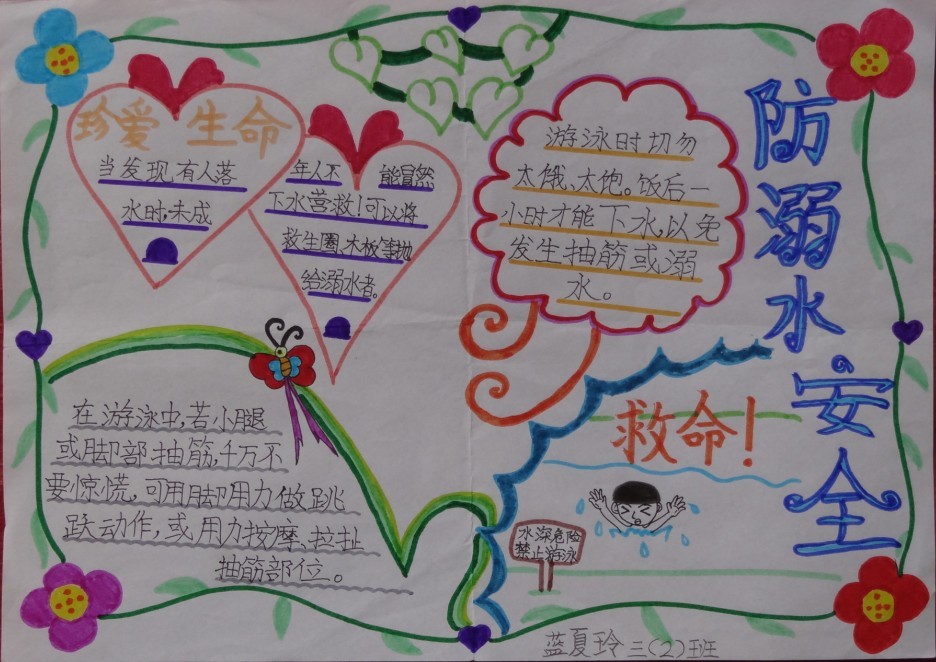 防溺水安全
珍爱 生命
当发现有人落
水时,未成
年人不 能冒然
下水营救!可以将
救生圈、木板等抛
给溺水者。
游泳时切勿
太饿、太饱。饭后一
小时才能下水,以免
发生抽筋或溺
水。
在游泳中,若小腿
或脚部抽筋,千万不
要惊慌,可用脚用力做跳
跃动作,或用力按摩、拉扯
抽筋部位。
救命!
水深危险
禁止游泳
蓝夏玲 三(2)班